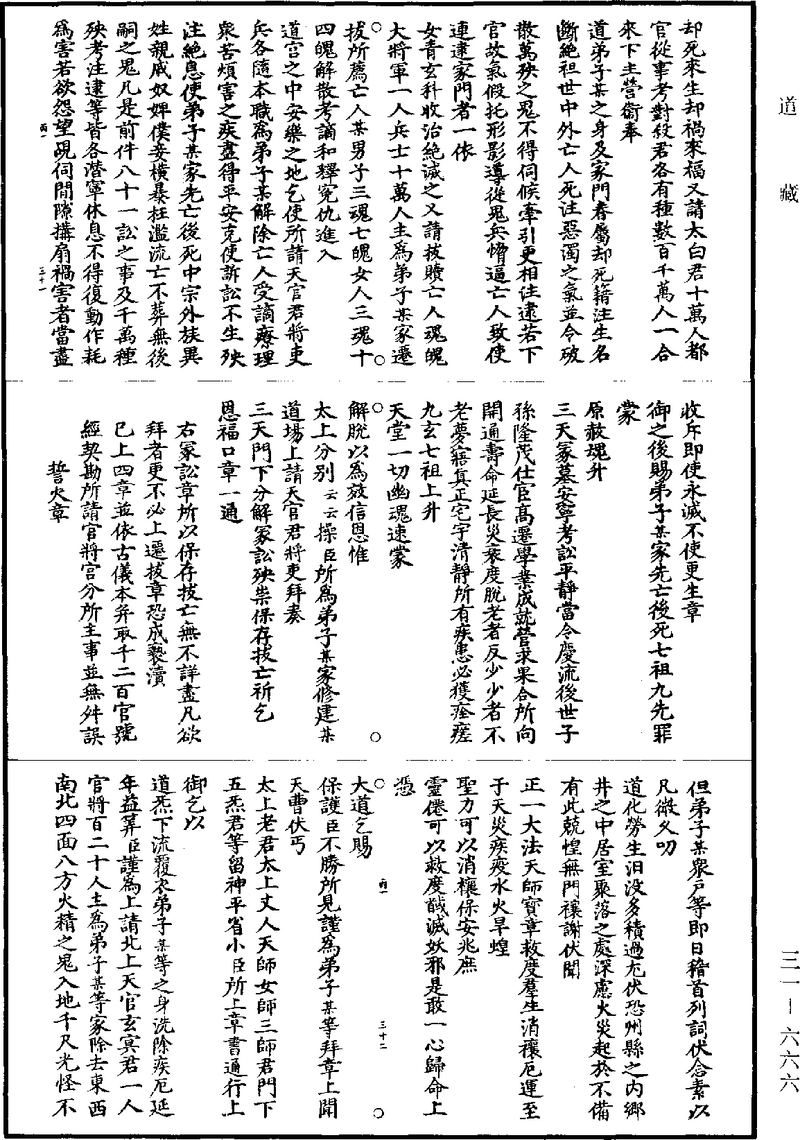 道藏
却死來生却禍來福又請太白君十萬人都
官從事考對殺君各有種數百千萬人一合
來下主營衛奉
道弟子某之身及家門眷屬却死籍注生名
斷絕祖世中外亡人死注惡濁之氣並令破
散萬殃之鬼不得伺候牽引更相注逮若下
官故氣假托形影導從鬼兵脅逼亡人致使
連逮家門者一依
女青玄科收治絕滅之又請拔贖亡人魂魄
大將軍一人兵士十萬人主為弟子某家遷
拔所薦亡人某男子三魂七魄女人三魂十
四魄解散考謫和釋冤仇進入
道宮之中安樂之地乞使所請天官君將吏
兵各隨本職為弟子某解除亡人受謫療理
衆苦煩害之疾盡得平安克使訴訟不生殃
注絕息使弟子某家先亡後死中宗外族異
姓親戚奴婢僕妾橫暴枉濫流亡不葬無後
嗣之鬼凡是前件八十一訟之事及千萬種
殃考注逮等皆各潛寧休息不得復動作耗
為害若欲怨望覘伺閒隙搆扇禍害者當盡
收斥即使永滅不使更生章
御之後賜弟子某家先亡後死七祖九先罪
蒙
原赦魂升
三天冢墓安寧考訟平靜當令慶流後世子
孫隆茂仕官高遷學業成就營求果合所向
開通壽命延長災衰度脫老者反少少者不
老夢寐真正宅宇清靜所有疾患必獲痊瘥
九玄七祖上升
天堂一切幽魂速蒙
解脫以為效信恩惟
太上分別云云操臣所為弟子某家修建某
道場上請天官君將吏拜奏
三天門下分解冢訟殃祟保存拔亡祈乞
恩福口章一通
右冢訟章所以保存拔亡無不詳盡凡欲
拜者更不必上遷拔章恐成褻瀆
已上四章並依古儀本并取千二百官號
經契勘所請官將宮分所主事並無舛誤
誓火章
但弟子某衆戶等即日稽首列詞伏念素以
凡微乂叨
道化勞生汨没多積過尤伏恐州縣之内鄉
井之中居室聚落之處深慮火災起於不備
有此兢惶無門禳謝伏聞
正一大法天師寶章救度羣生消禳厄運至
于天災疾疫水火旱蝗
聖力可以消禳保安兆庶
靈倦可以救度馘滅妖邪是敢一心歸命上
憑
大道乞賜
保護臣不勝所見謹為弟子某等拜章上聞
天曹伏丐
太上老君太上丈人天師女師三師君門下
五炁君等留神平省小臣所上章書通行上
御乞以
道炁下流覆衣弟子某等之身洗除疾厄延
年益筭臣謹為上請北上天官玄冥君一人
官將百二十人主為弟子某等家除去東西
南北四面八方火精之鬼入地千尺光怪不
三一－六六六